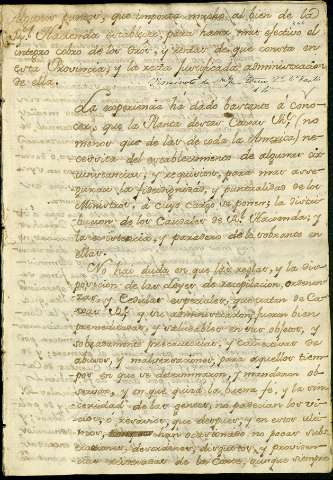 algunos puntos, que importa mucho al bien de la
Rl. Hacienda establecer, para hacer mas efectivo el
integro cobro de los Rxos, y rentas de que consta en
esta Provincia; y la recta justificada administracion
de ella.
La experiencia ha dado bastante à cono-
cer, que la Planta de estas Caxas Rs. (no
menos que de las de toda la America) ne-
cesita del establecimento de algunas cir
cunstancias, y requisitos, para mas asse-
gurar la fidelidad, y puntualidad de los
Ministros, à cuyo cargo se ponen; la distri-
bucion de los Caudales de Rl. Hacienda, y
la existencia, y paradero de lo sobrante en
ellas.
No hai duda en que las reglas, y la dis-
posicion de las Leyes de recopilacion, ordenan-
zas, y Cedulas especiales, que tratan de Ca-
xas Rs. y su administracion, fueron bien
premeditadas, y saludables en sus objetos, y
sobradamente precautorias, y
abusos, y malversaciones, para aquellos tiem-
pos en que se determinaron, y mandaron ob-
servar, y en que quizá la buena fe, y la sin-
ceridad de las gentes, no padecian los vi-
cios, o resavios, que despues, y en estos ulti-
mos, han ocasionado no pocas subs-
tracciones, desordenes, disgustos, y provisio-
nes de la Corte, aunque siempre